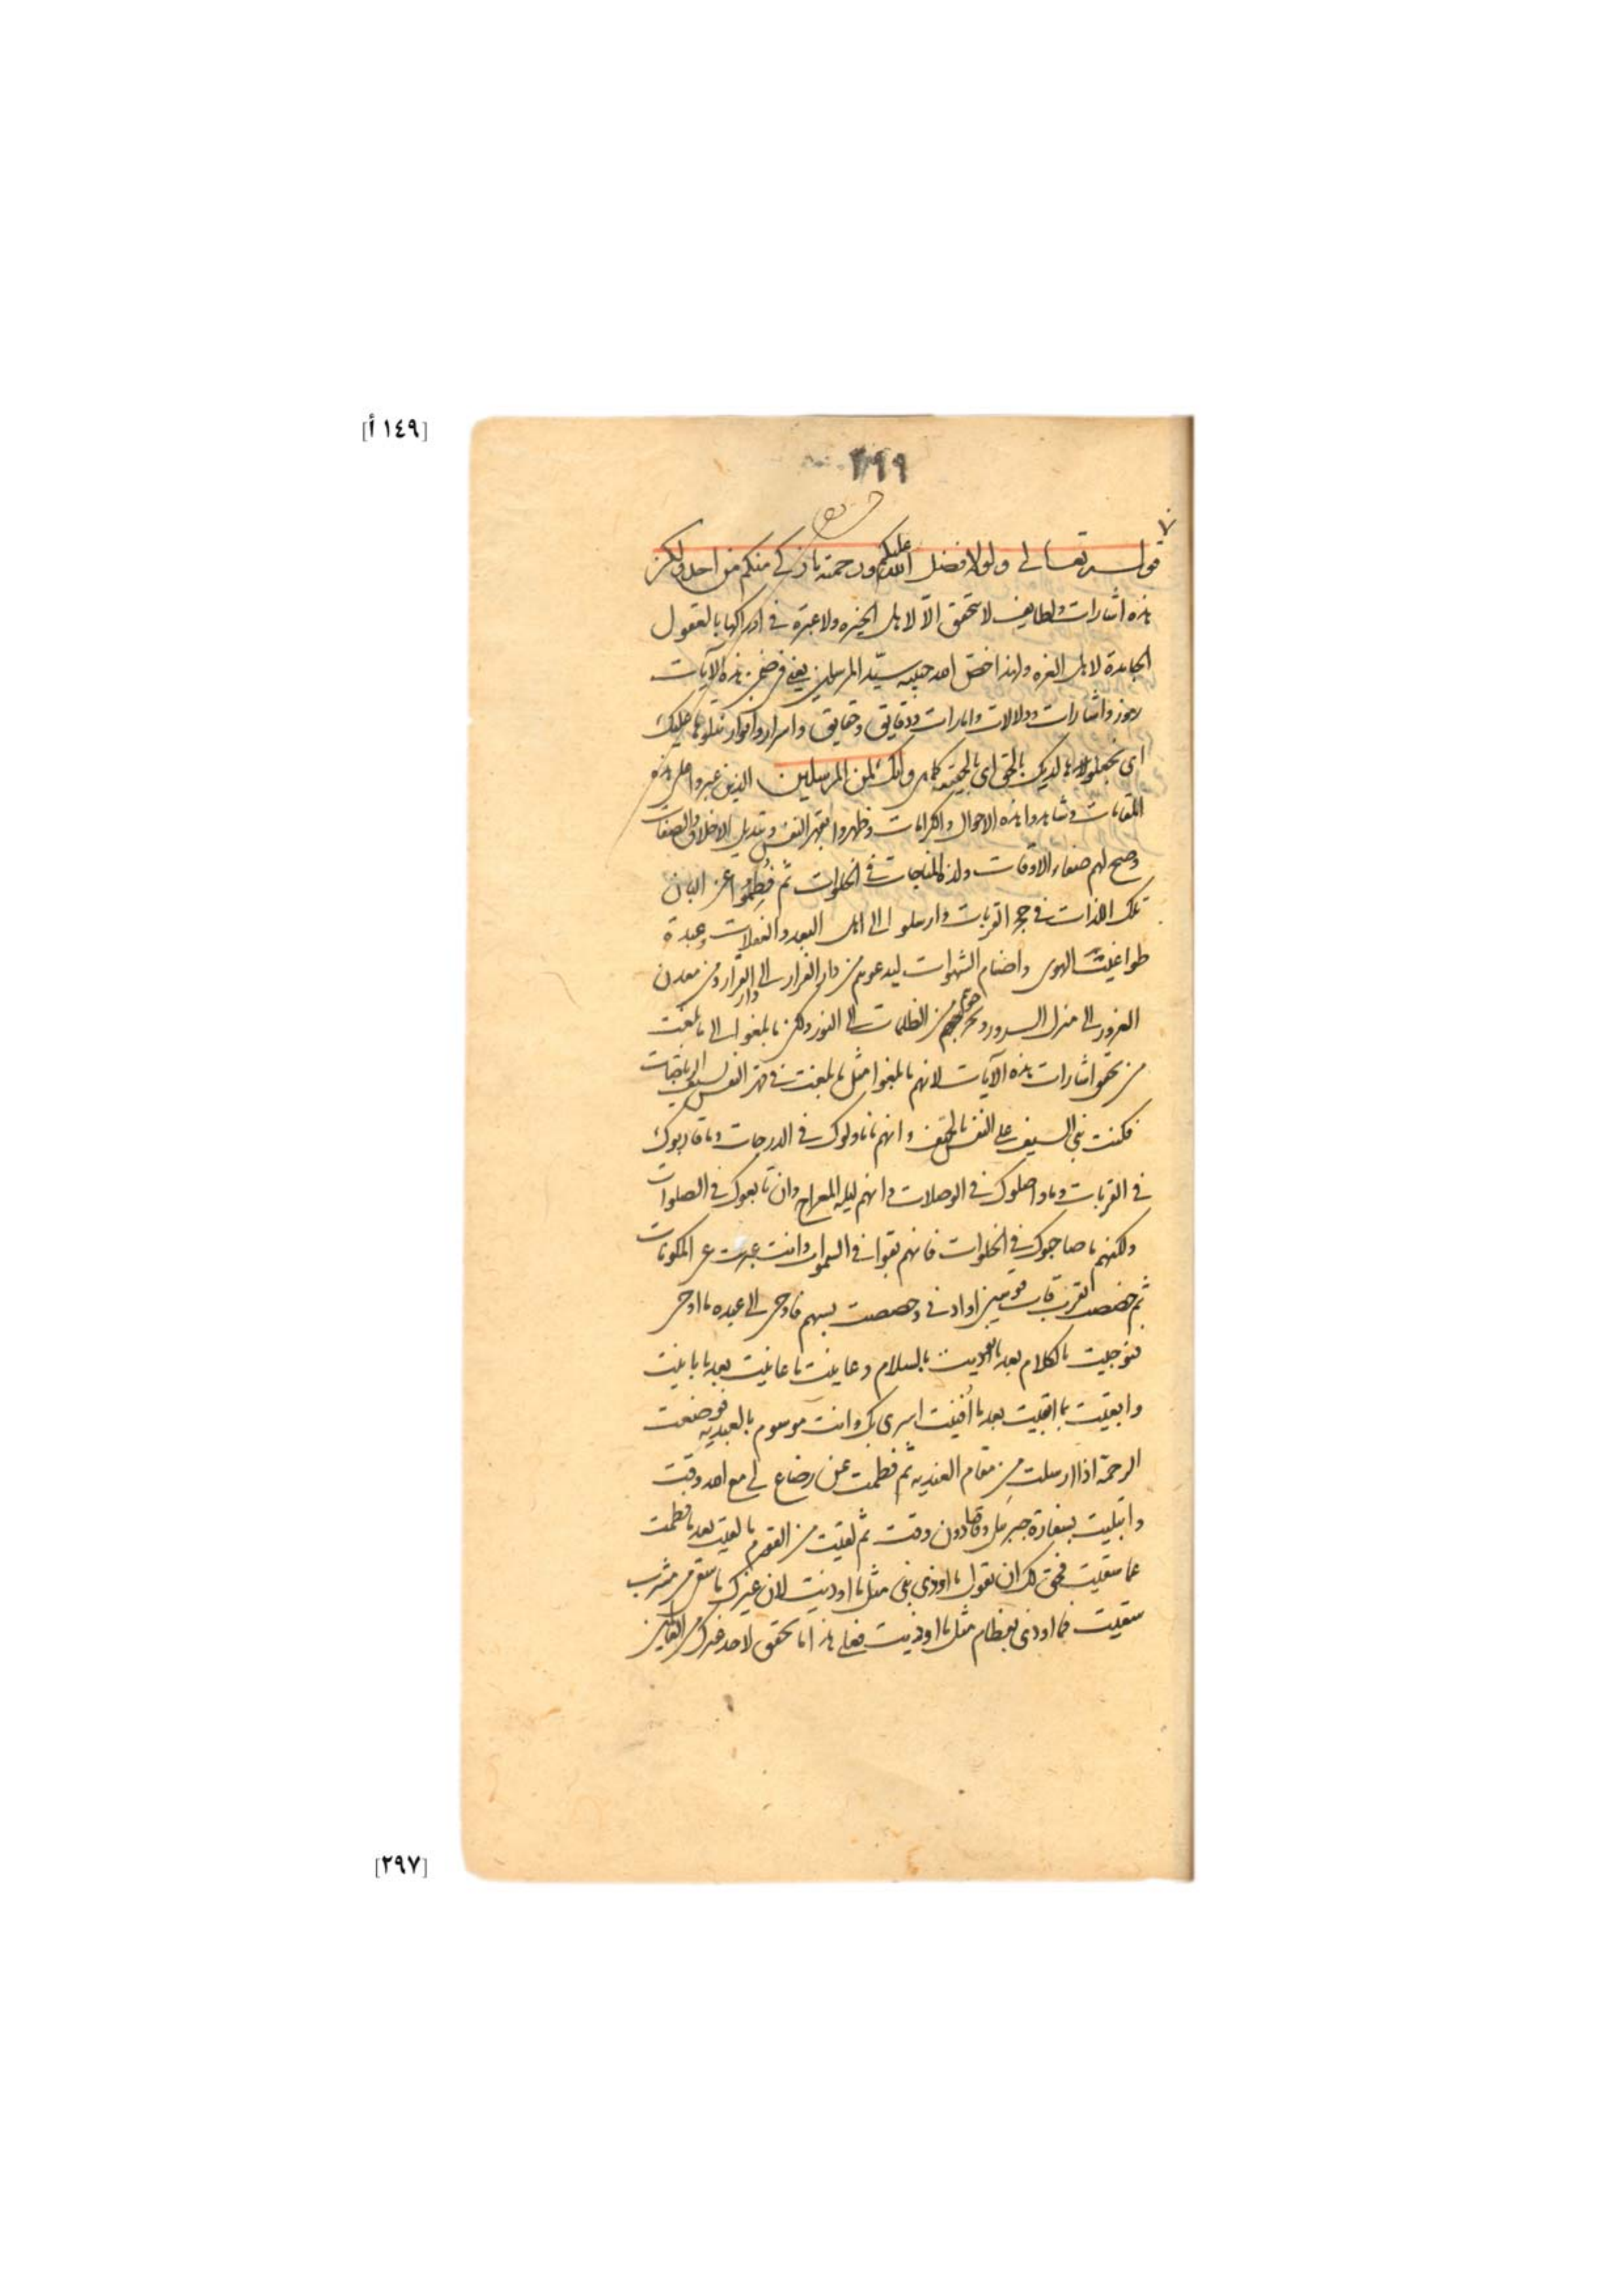 [١٤٩ أ]
٢٩٩
قوله تعالى ولولا فضل الله عليكم ورحمته ما زكى منكم من احد ولكن
هذه اشارات ولطايف لا تتحقق الا لاهل الخبره ولا عبرة فى ادراكها بالعقول
الجامدة لاهل الغره ولهذا خص الله حبيبه سيد المرسلين يعنى فى ضمن هذه الايات
رموز واشارات ودلالات وامارات ودقايق وحقايق واسرار وانوار نتلوها عليك
اى نجعلوها لديك بالحق اى بالحقيقه كما هى وانك لمن المرسلين الذين عبروا على هذه
المقامات وشاهدوا هذه الاحوال والكرامات وظهروا بقهر النفس وتبديل الاخلاق والصفات
وصح لهم صفاء الاوقات ولذة المناجات فى الخلوات ثم فُطِمُوا عن البان
تلك اللذات فى حجر القربات وارسلوا الى اهل البعد والغفلات وعبدة
طواغيت الهوى واصنام الشهوات ليدعوهم من دار الفرار الى دار القرار ومن معدن
الغرور الى منزل السرور ويخرجوهم من الظلمات الى النور ولكن ما بلغوا الى ما بلغت
من تحقق اشارات هذه الآيات لانهم ما بلغوا مثل ما بلغت فى قهر النفس بسيوف الرياضات
فكنت نبى السيف على النفس بالحقيقة وانهم ما ناولوك فى الدرجات وما قاربوك
فى القربات وما واصلوك فى الوصلات وانهم ليله المعراج وان تابعوك فى الصلوات
ولكنهم ما صاحبوك فى الخلوات فانهم بقوا فى السموات وانت عبرت عن المكونات
ثم خصصت بقرب قاب قوسين او ادنى وخصصت بسهم فاوحى الى عبده ما اوحى
فنوجيت بالكلام بعد ما نوديت بالسلام وعاينت ما عاينت بعد ما باينت
وابقيت بما ابقيت بعد ما أفنيت اسرى بك وانت موسوم بالعبديه فوضعت
الرحمة اذا ارسلت من مقام العنديه ثم فطمت عن رضاع لى مع الله وقت
وابتليت بسفارة جبريل وقتا دون وقت ثم لقيت من القوم ما لقيت بعد ما فطمت
عما سقيت فحق لك ان تقول ما اوذى نبى مثل ما اوذيت لان غيرك ما سقى من مشرب
سقيت فما اوذى بفطام مثل ما اوذيت فعلى هذا ما تحقق لاحد غيرك من العالمين
[٢٩٧]